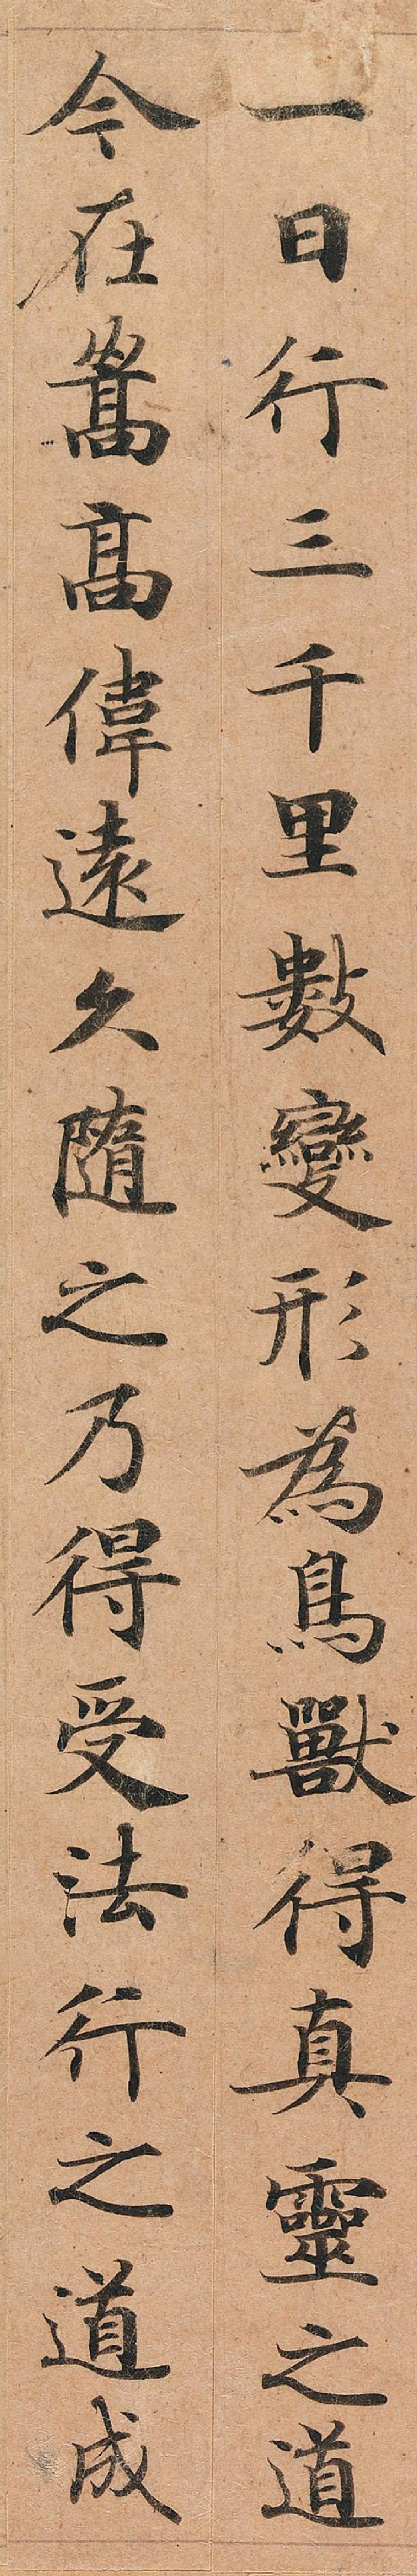 一日行三千里數變形為鳥獸得真靈之道
今在嵩高偉遠久隨之乃得受法行之道成